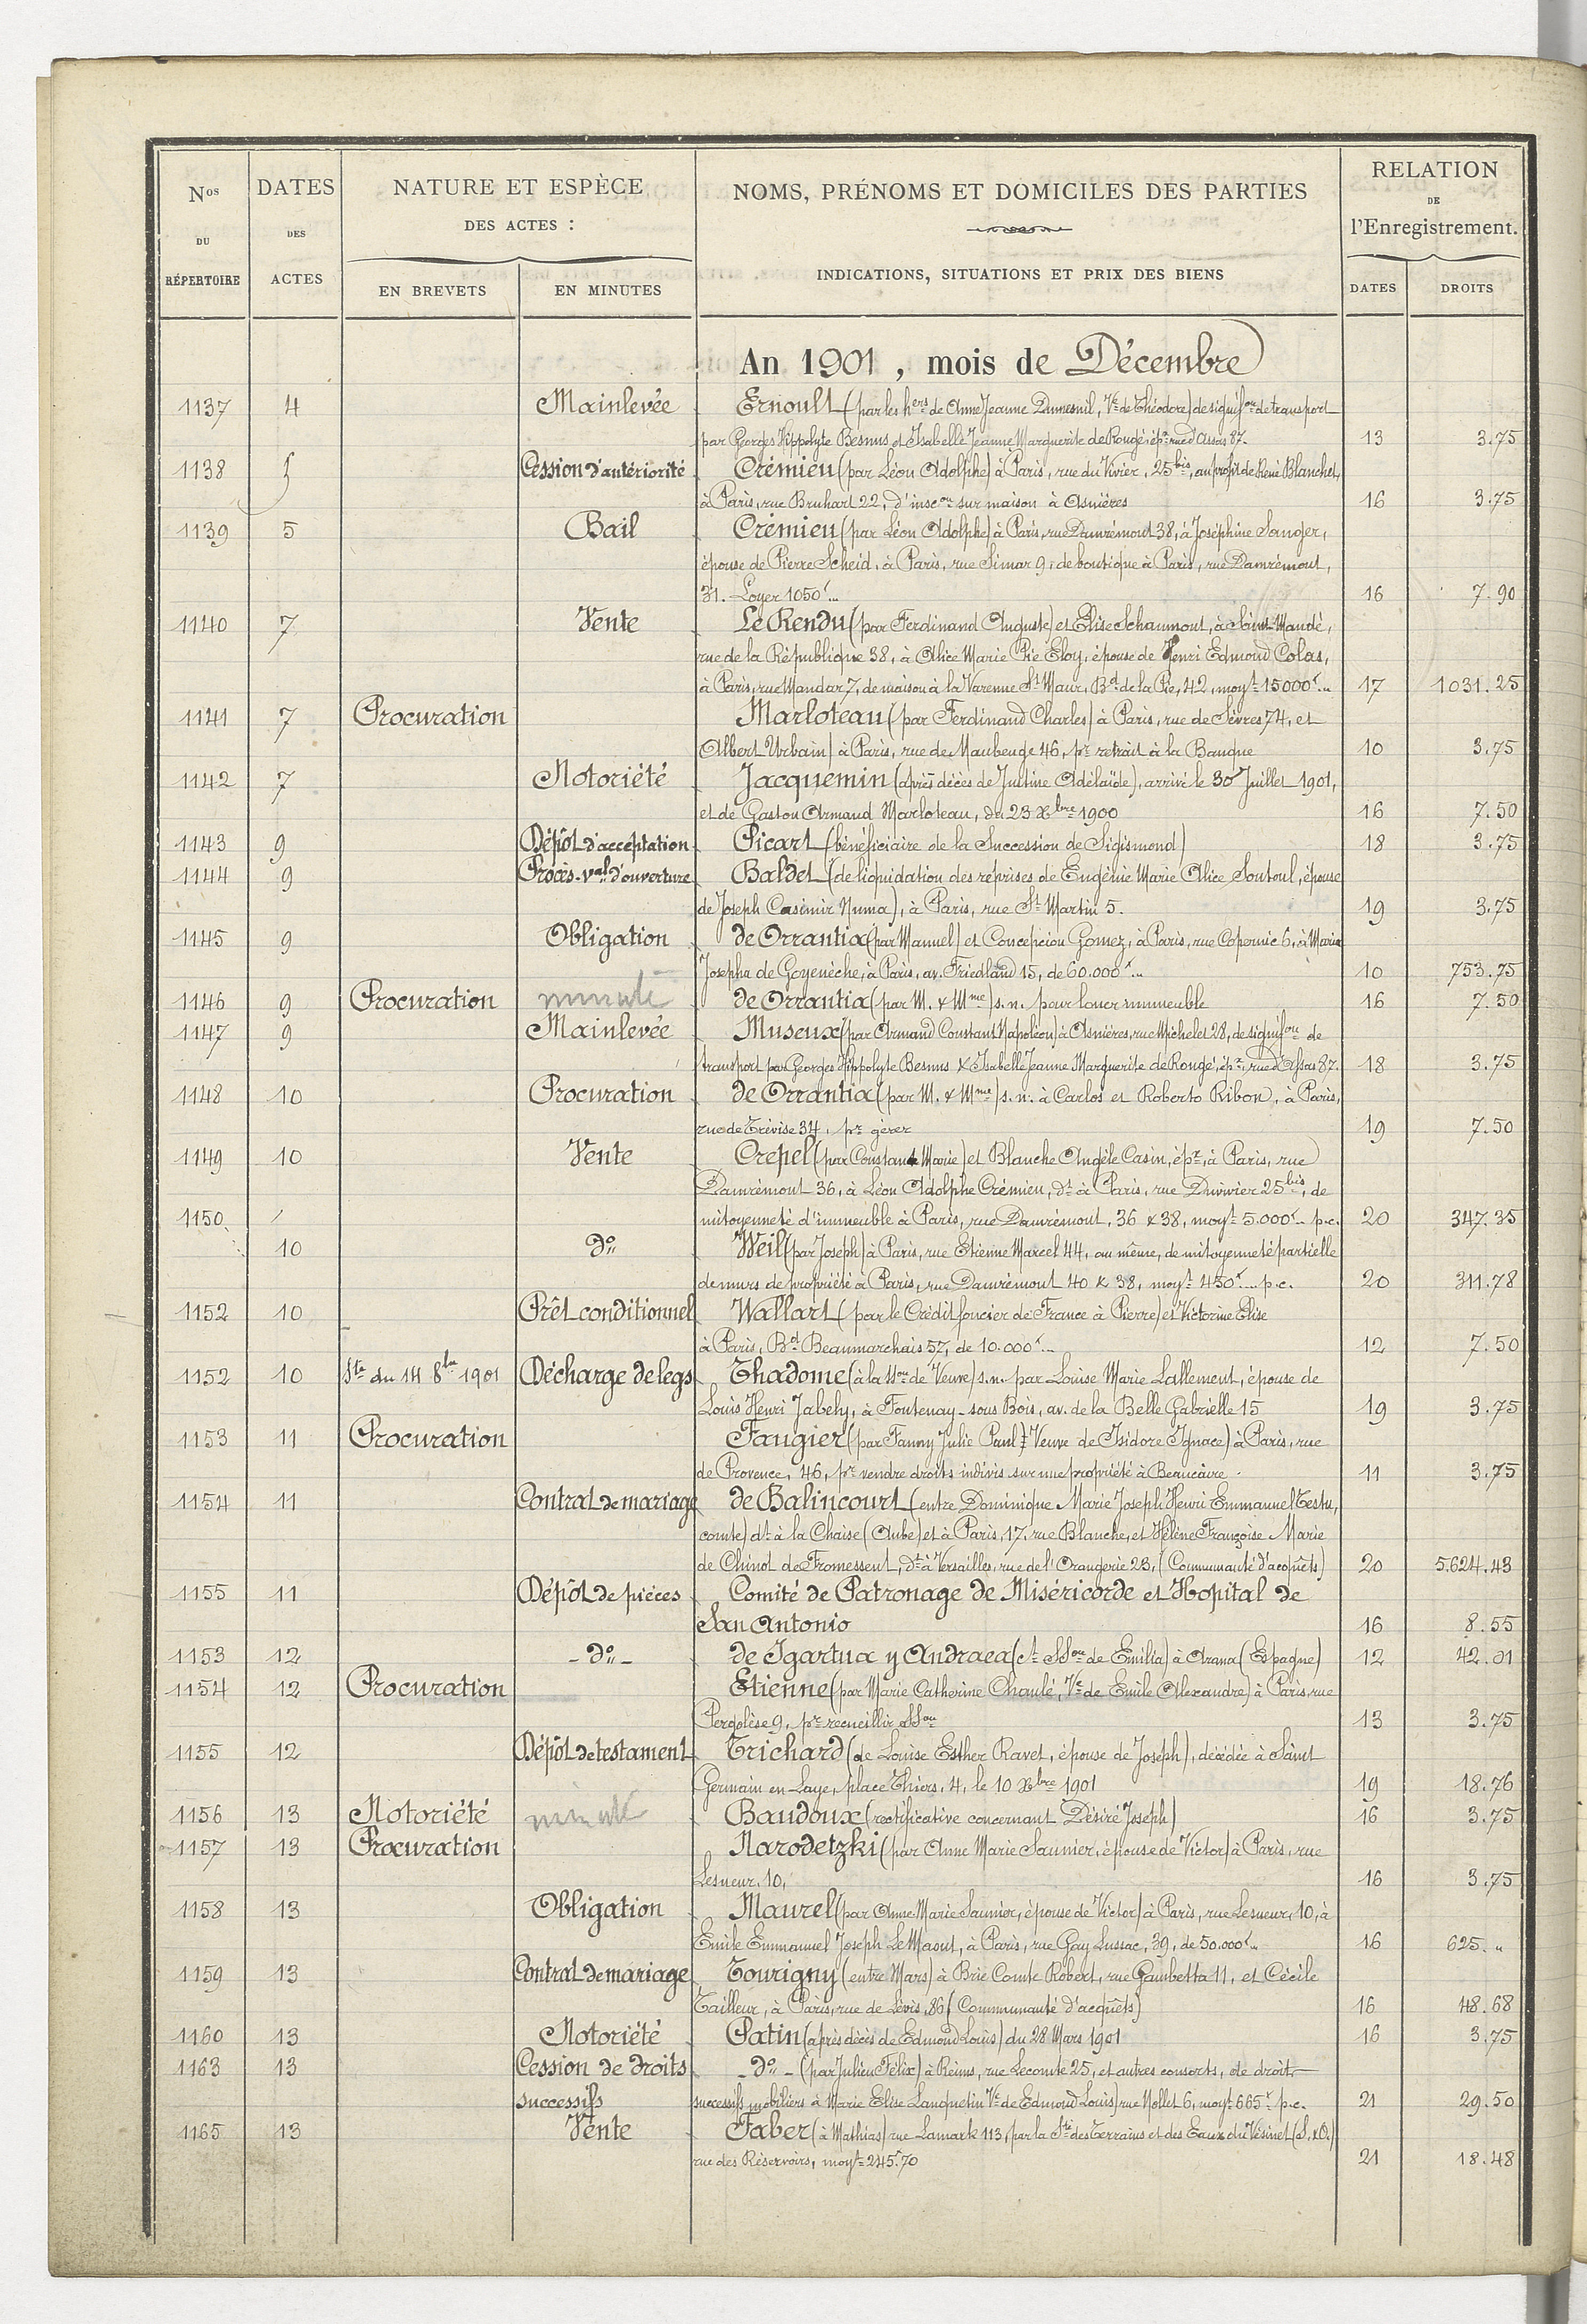 Nos DU RÉPERTOIRE
DATES DES ACTES
NATURE ET ESPÈCE DES ACTES :
EN BREVETS
EN MINUTES
NOMS, PRÉNOMS ET DOMICILES DES PARTIES
INDICATIONS, SITUATIONS ET PRIX DES BIENS
RELATION DE l'Enregistrement.
DATES
DROITS
An 1901, mois de Décembre
1137 4 Mainlevée Ernoult (par les hers de Anne Jeanne Dumesnil, Ve de Théodore) de signifon de transport
par Georges Hippolyte Besnus et Isabelle Jeanne Marguerite de Rougé ép. rue d'Assas 87. 13 3.75
1138 Cession d'antériorité Crémieu (par Léon Adolphe) à Paris, rue du Vivier, 25 bis, au profit de René Blanchet,
à Paris, rue Bruhart 22, d'inscon sur maison à Asnières 16 3.75
1139 5 Bail Crémieu (par Léon Adolphe) à Paris, rue Damrémont 38, à Joséphine Sanger,
épouse de Pierre Scheid, à Paris, rue Simar 9, de boutique à Paris, rue Damrémont,
31. Loyer 1050 f... 16 7.90
1140 7 Vente Le Rendu (par Ferdinand Auguste) et Elise Schaumont, à Saint-Mandé,
rue de la République 38, à Alice Marie Pie Eloy, épouse de Henri Edmond Colas,
à Paris, rue Mandar 7, de maison à la Varenne St Maur, Bd de la Pie, 42, moyt 15000 f... 17 1031.25
1141 7 Procuration Marloteau (par Ferdinand Charles) à Paris, rue de Sèvres 74, et
Albert Urbain) à Paris, rue de Maubeuge 46, pr retrait à la Banque 10 3.75
1142 7 Notoriété Jacquemin (après décès de Justine Adélaïde), arrivé le 30 Juillet 1901,
et de Gaston Armand Marloteau, du 23 Xbre 1900 16 7.50
1143 9 Dépôt d'acceptation Picart (bénéficiaire de la Succession de Sigismond) 18 3.75
1144 9 Procès-val d'ouverture Baldet (de liquidation des reprises de Eugénie Marie Alice Soutoul, épouse
de Joseph Casimir Numa), à Paris, rue St Martin 5. 19 3.75
1145 9 Obligation de Orrantia (par Manuel) et Concepcion Gomez, à Paris, rue Copernic 6, à Maria
Josepha de Goyenèche, à Paris, av. Friedland 15, de 60.000 f... 10 753.75
1146 9 Procuration minute de Orrantia (par M. & Mme) s.n. pour louer immeuble 16 7.50
1147 9 Mainlevée Museux (par Armand Constant Napoléon) à Asnières, rue Michelet 28, de signifon de
transport par Georges Hippolyte Besnus & Isabelle Jeanne Marguerite de Rougé, ép. rue d'Assas 87. 18 3.75
1148 10 Procuration de Orrantia (par M. & Mme) s.n. à Carlos et Roberto Ribon, à Paris,
rue de Trévise 34, pr gérer 19 7.50
1149 10 Vente Crepel (par Constant Marie) et Blanche Angèle Casin, ép., à Paris, rue
Damrémont 36, à Léon Adolphe Crémieu, dt à Paris, rue Duvivier 25 bis, de
1150 mitoyenneté d'immeuble à Paris, rue Damrémont, 36 & 38, moyt 5.000 f. p.c. 20 347.35
10 do Weil (par Joseph) à Paris, rue Etienne Marcel 44, au même, de mitoyenneté partielle
de murs de propriété à Paris, rue Damrémont 40 & 38, moyt 450 f... p.c. 20 311.78
1152 10 Prêt conditionnel Wallart (par le Crédit foncier de France à Pierre) et Victorine Elise
à Paris, Bd Beaumarchais 57, de 10.000 f... 12 7.50
1152 10 Ste du 14 8bre 1901 Décharge de legs Thadome (à la SSon de Veuve) s.n. par Louise Marie Lallement, épouse de
Louis Henri Jabely, à Fontenay-sous Bois, av. de la Belle Gabrielle 15 19 3.75
1153 11 Procuration Faugier (par Fanny Julie Paul, Veuve de Isidore Ignace) à Paris, rue
de Provence, 46, pr vendre droits indivis sur une propriété à Beaucaire. 11 3.75
1154 11 Contrat de mariage de Balincourt (entre Dominique Marie Joseph Henri Emmanuel Testu,
comte) dt à la Chaise (Aube) et à Paris, 17, rue Blanche, et Hélène Françoise Marie
de Chinot de Fromessent, dt à Versailles, rue de l'Orangerie 23, (Communauté d'acquêts) 20 5.624.43
1155 11 Dépôt de pièces Comité de Patronage de Miséricorde et Hopital de
San Antonio 16 8.55
1153 12 -do- de Igartua y Andraea (St SSon de Emilia) à Arana (Espagne) 12 42.01
1154 12 Procuration Etienne (par Marie Catherine Chaulé, Ve de Emile Alexandre) à Paris, rue
Pergolèse 9, pr recueillir SSon 13 3.75
1155 12 Dépôt de testament Trichard (de Louise Esther Ravet, épouse de Joseph), décédée à Saint
Germain en Laye, place Thiers, 4, le 10 Xbre 1901 19 18.76
1156 13 Notoriété minute Baudoux (rectificative concernant Désiré Joseph) 16 3.75
1157 13 Procuration Narodetzki (par Anne Marie Saunier, épouse de Victor) à Paris, rue
Lesueur, 10, 16 3.75
1158 13 Obligation Maurel (par Anne Marie Saunier, épouse de Victor) à Paris, rue Lesueur, 10, à
Emile Emmanuel Joseph Le Maout, à Paris, rue Gay Lussac, 39, de 50.000 f... 16 625. "
1159 13 Contrat de mariage Tourigny (entre Mars) à Brie Comte Robert, rue Gambetta 11, et Cécile
Tailleur, à Paris, rue de Lévis, 86 (Communauté d'acquêts) 16 48.68
1160 13 Notoriété Patin (après décès de Edmond Louis) du 28 Mars 1901 16 3.75
1163 13 Cession de droits -do- (par Julien Félix) à Reims, rue Lecomte 25, et autres consorts, de droits
successifs successifs mobiliers à Marie Elise Lanquetin Ve de Edmond Louis) rue Nollet 6, moyt 665 f p.c. 21 29.50
1165 13 Vente Faber (à Mathias) rue Lamark 113, par la Sté des Terrains et des Eaux du Vésinet (S.&O.)
rue des Réservoirs, moyt 245 f.70 21 18.48